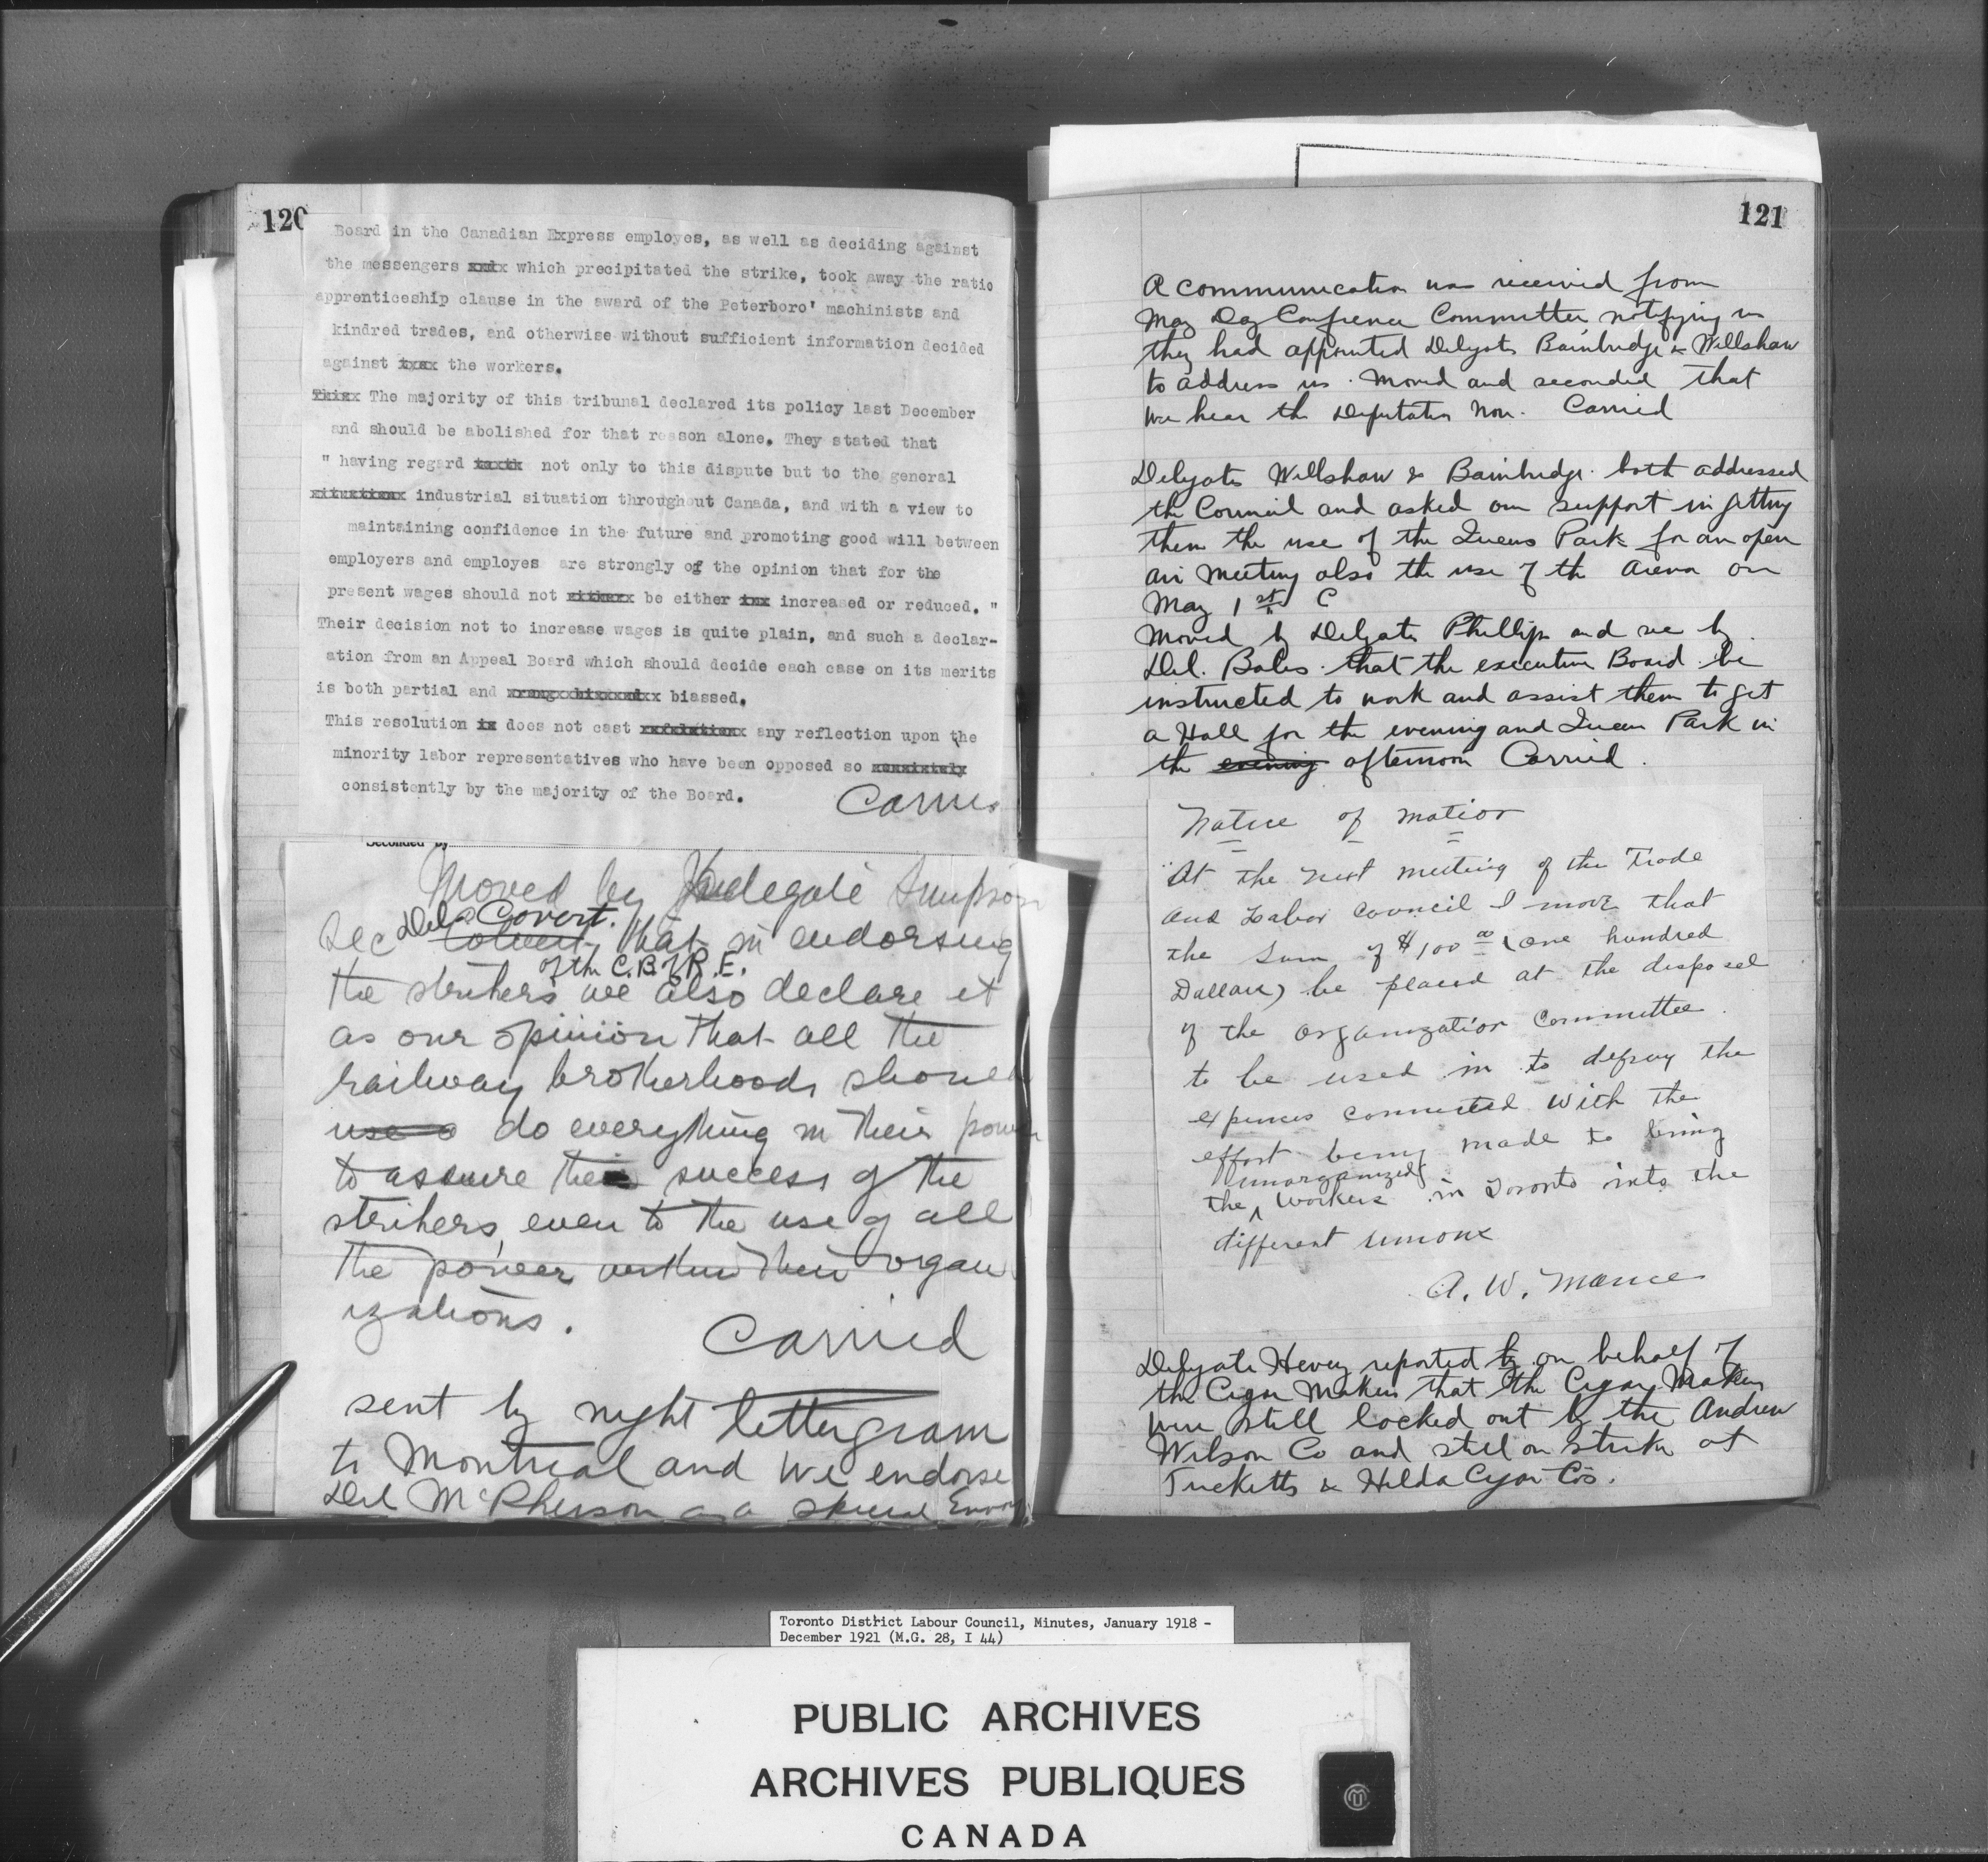 120
Board in the Canadian Express employes, as well as deciding against
the messengers xxdx which precipitated the strike, took away the ratio
apprenticeship clause in the award of the Peterboro' machinists and
kindred trades, and otherwise without sufficient information decided
against txxx the workers.
Thisx The majority of this tribunal declared its policy last December
and should be abolished for that reason alone. They stated that
" having regard not only to this dispute but to the general
situationx industrial situation throughout Canada, and with a view to
maintaining confidence in the future and promoting good will between
employers and employes are strongly of the opinion that for the
present wages should not eitherx be either inx increased or reduced. "
Their decision not to increase wages is quite plain, and such a declar-
ation from an Appeal Board which should decide each case on its merits
is both partial and biassed.
This resolution is does not cast any reflection upon the
minority labor representatives who have been opposed so
consistently by the majority of the Board.
Carried
Seconded by
Moved by Delegate Simpson
Sec Del Covert. that in endorsing
of the C.B. of R.E.
the strikers we also declare it
as our opinion that all the
railway brotherhoods should
use do everything in their power
to assure the success of the
strikers, even to the use of all
the power within their organ
izations.
Carried
sent by night lettergram
to Montreal and we endorse
Del McPherson as a special Envoy
121
A communication was received from
May Day Conference Committee notifying us
they had appointed Delegates Bainbridge & Willshaw
to address us. Moved and seconded that
we hear the Deputation now. Carried
Delegates Willshaw & Bainbridge both addressed
the Council and asked our support in getting
them the use of the Queens Park for an open
air meeting also the use of the Arena on
May 1st C
Moved by Delegate Phillips and sec by
Del. Bales that the executive Board be
instructed to work and assist them to get
a Hall for the evening and Queen Park in
the evening afternoon Carried.
Notice of motion
"At the next meeting of the Trade
and Labor Council I move that
the sum of $100 00 (one hundred
Dollars) be placed at the disposal
of the organization Committee.
to be used in to defray the
expences connected with the
effort being made to bring
unorganized
the ^ workers in Toronto into the
different unions
A. W. Mance
Delegate Hevey reported by on behalf of
the Cigar Makers that the Cigar Makers
were still locked out by the Andrew
Wilson Co and still on strike at
Tucketts & Hilda Cigar Co's.
Toronto District Labour Council, Minutes, January 1918 -
December 1921 (M.G. 28, I 44)
PUBLIC ARCHIVES
ARCHIVES PUBLIQUES
CANADA